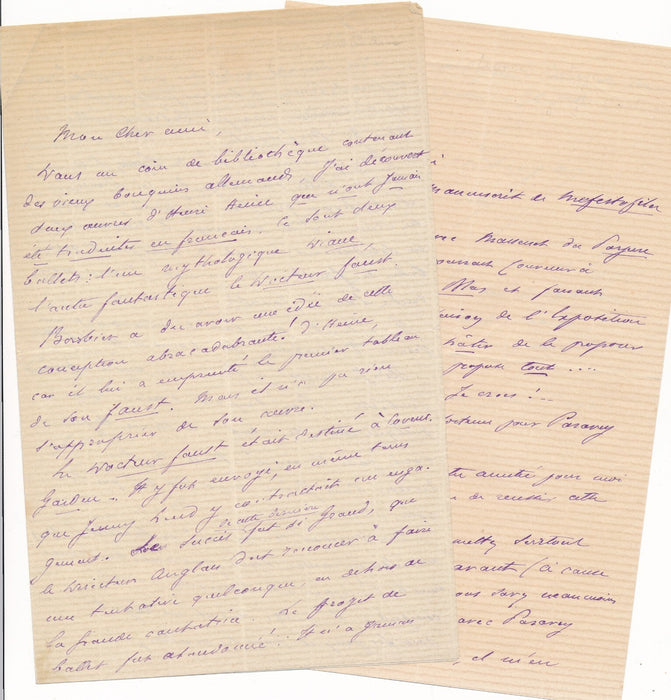 Mon cher ami,
Dans un coin de bibliothèque contenant
des vieux bouquins allemands, j'ai découvert
deux œuvres d'Henri Heine que n'ont jamais
été traduites en français. Ce sont deux
ballets : l'une mythologique Diane,
l'autre fantastique le Docteur Faust.
Barbier a du avoir une idée de cette
conception abracadabrante ! d'Heine,
car il lui a emprunté le premier tableau
de son Faust. Mais il n'a pu rien
s'approprier de son œuvre.
Le Docteur Faust était destiné à Covent
Garden. Il y fut envoyé, en même temps
que Jenny Lind y contractait un enga-
gement. Le succès de cette dernière fut si grand, que
le Directeur Anglais dut renoncer à faire
une tentative quelconque, en dehors de
la grande cantatrice. Le projet de
ballet fut abandonné. Il n'a jamais
manuscrit de Mefistofélès
avec Massenet du
pourrait convenir à
Mas et faisant
de l'Exposition
hâter de le proposer
propose tout ....
Je crois ! --
docteur pour Pasarey
amitié pour moi
de réussir cette
surtout
avant (à cause
vous
avec Pasarey
, il m'en